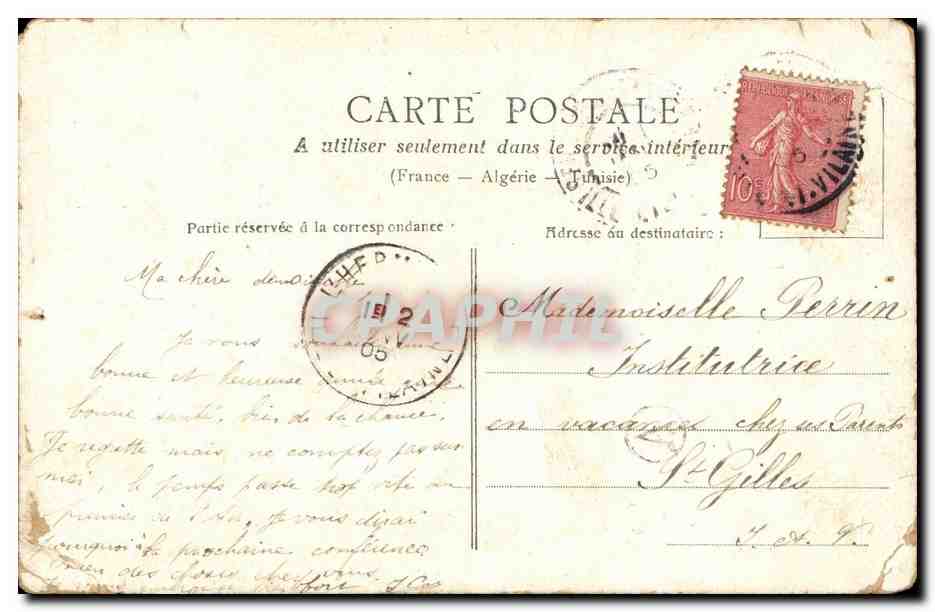 CARTE POSTALE
A utiliser seulement dans le service intérieur
(France — Algérie — Tunisie)
REPUBLIQUE FRANÇAISE
10c
Partie réservée à la correspondance
Adresse du destinataire :
L'HER
2
05
CPAPHIL
VILAINE
Ma chère demoiselle
Je vous souhaite une
bonne et heureuse année
bonne santé, bien de la chance.
Je regrette mais ne comptez pas sur
moi, le temps passe trop vite au
premier de l'An. Je vous dirai
pourquoi à la prochaine conférence
bien des choses chez vous.
Mademoiselle Perrin
Institutrice
en vacances chez ses Parents
St Gilles
I. A. V.